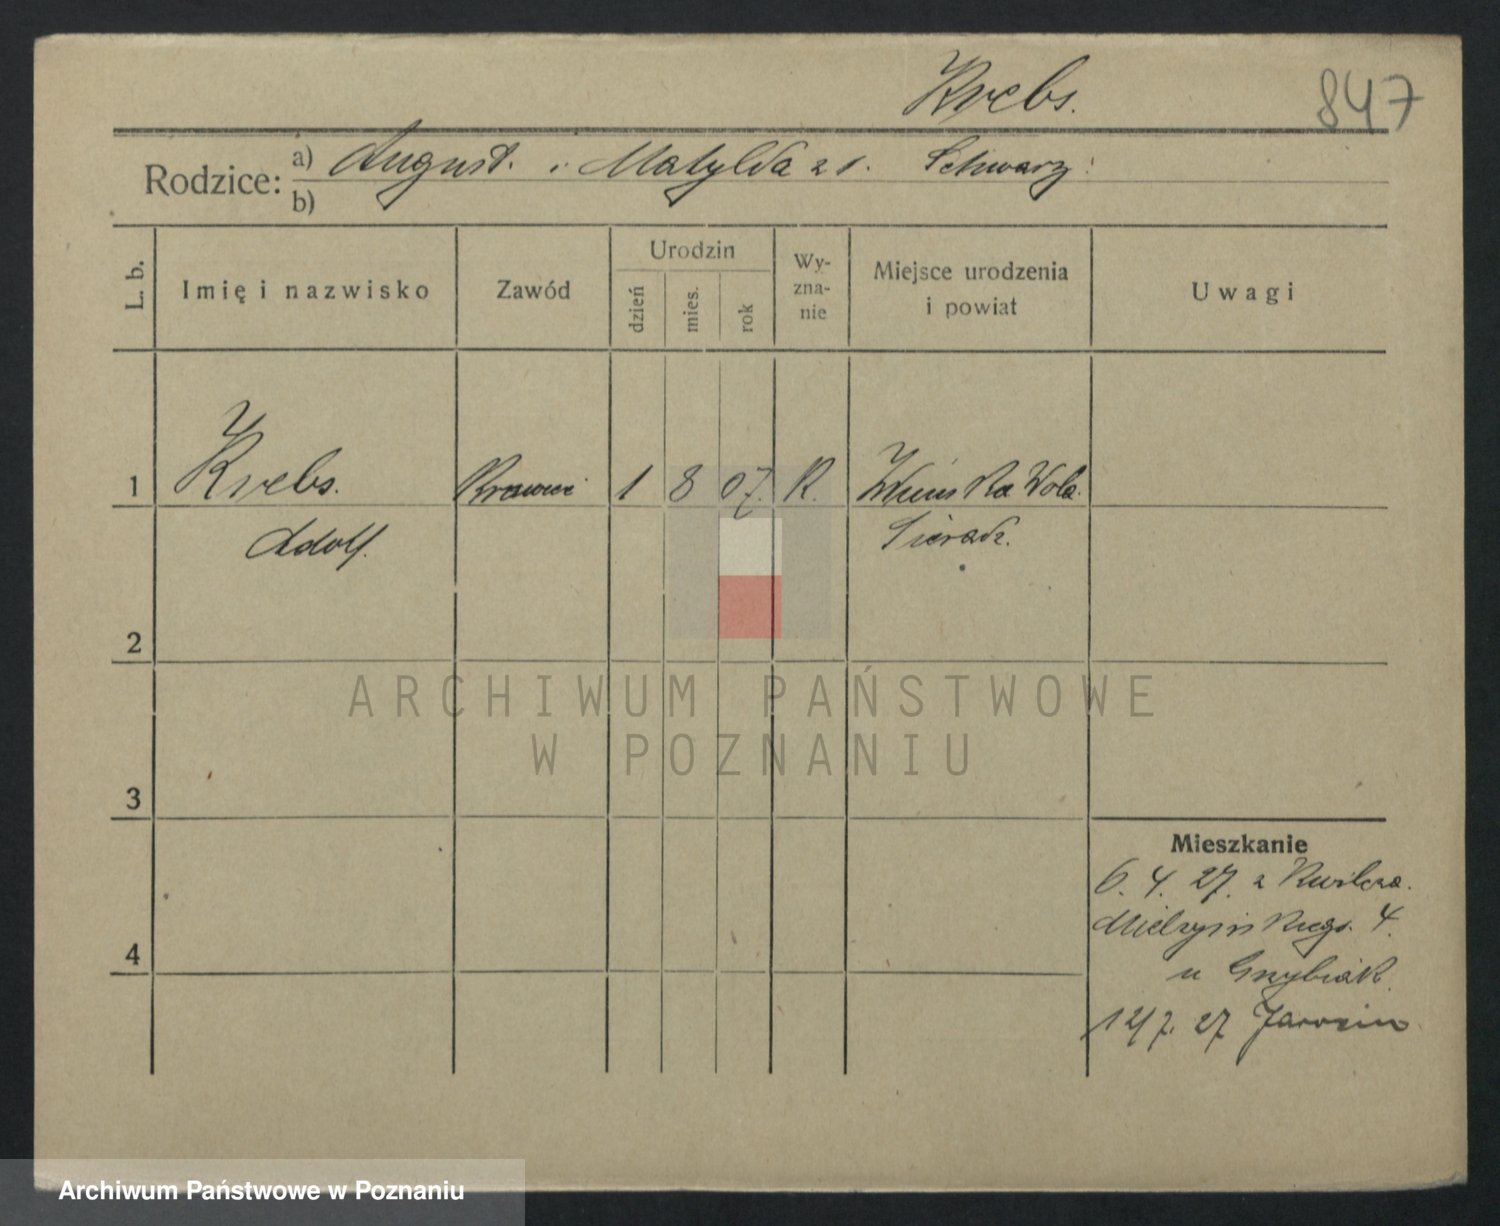 Krebs.
847
Rodzice:
a) August. i Matylda z d. Schwarz
b)
L. b.
Imię i nazwisko
Zawód
Urodzin
dzień
mies.
rok
Wy-
zna-
nie
Miejsce urodzenia
i powiat
Uwagi
1 Krebs. Krawiec 1 8 07. K. Wola.
Adolf. Sieradz.
2
3
4
Mieszkanie
6. 4. 27. z Kwilcza.
Mielżyńskiego. 4.
u Grzybiak.
12/7. 27 Jarocin
ARCHIWUM PAŃSTWOWE
W POZNANIU
Archiwum Państwowe w Poznaniu